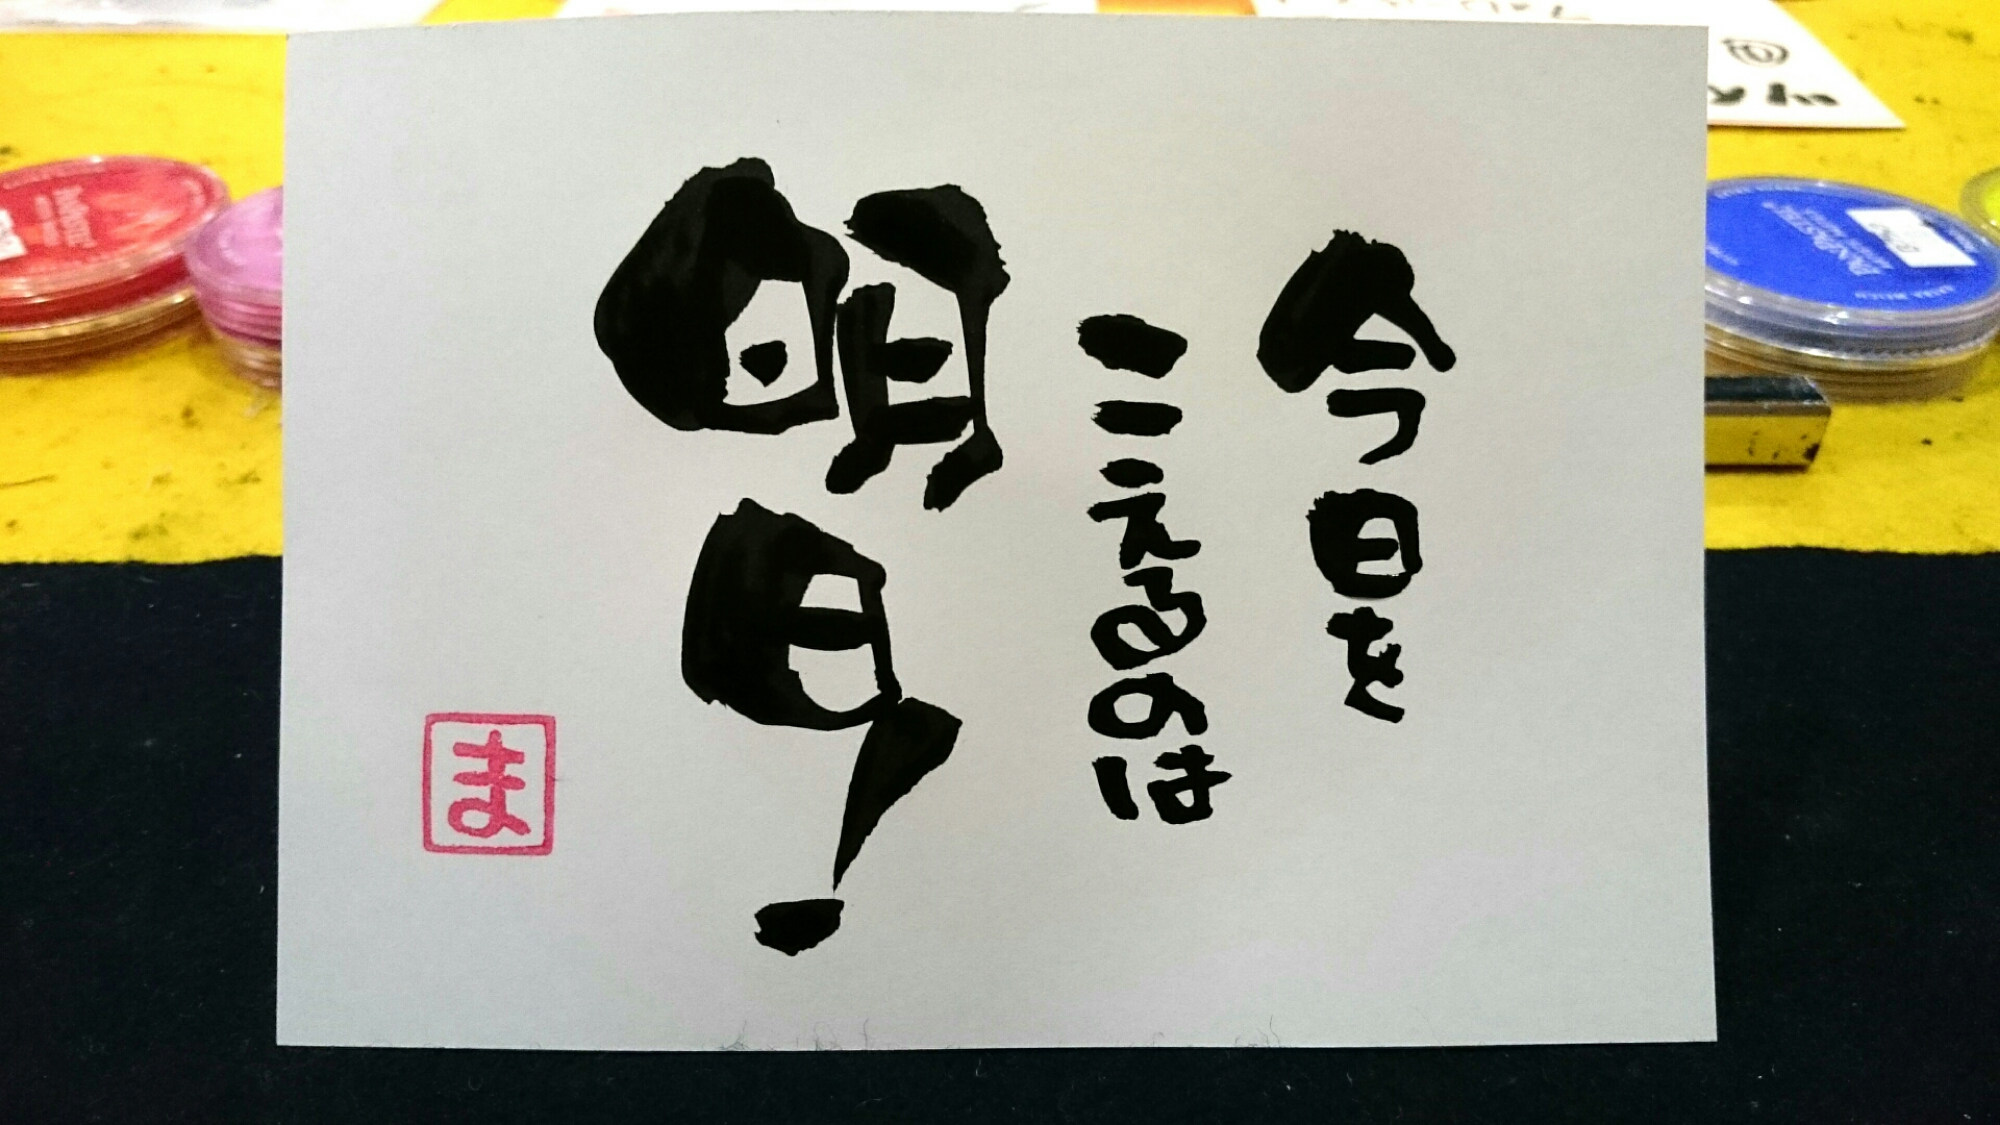 今日を
こえるのは
明日
ま
PanPastel